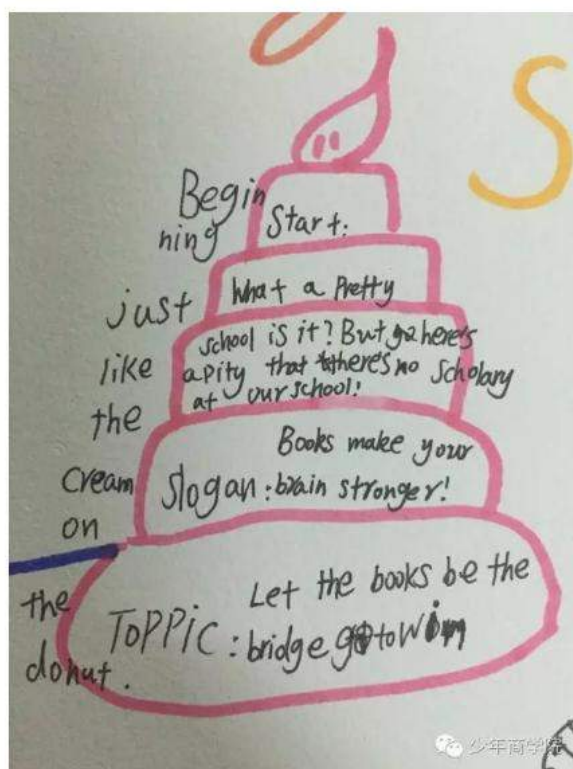 Begin
ning
just
like
the
cream
on
the
donut.
Start:
What a Pretty
school is it? But here's
a pity that there's no Scholary
at our school!
Books make your
Slogan: brain stronger!
Let the books be the
TOPPIC: bridge to win
S
少年商学院